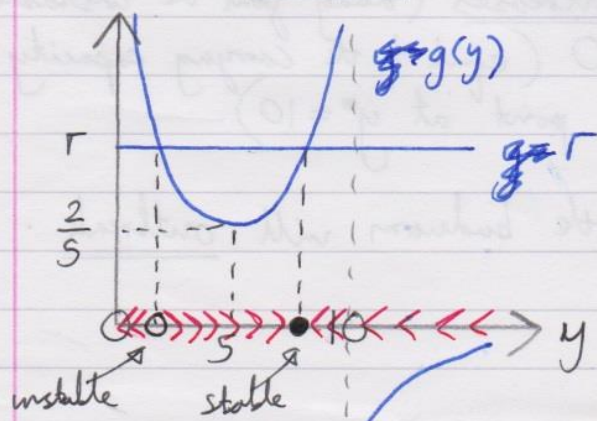 g(y)
r
r
2/5
5
10
y
unstable
stable